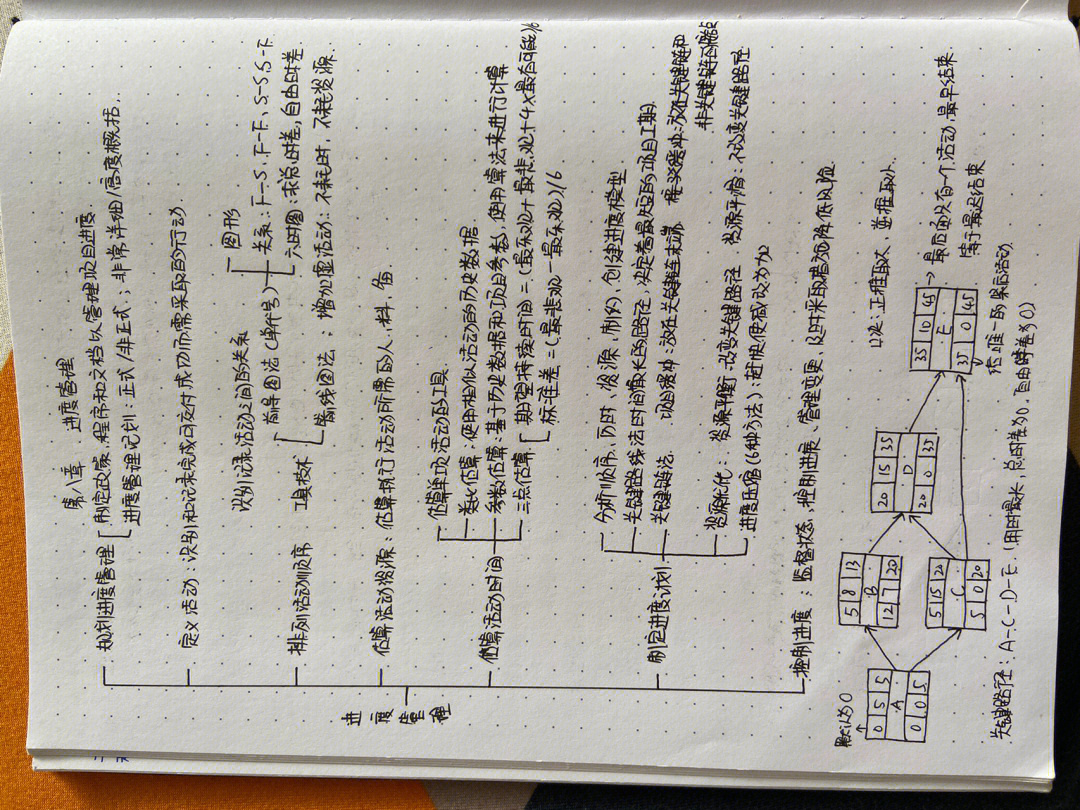 第八章 进度管理
进度管理
规划进度管理
制定政策,程序和文档以管理项目进度.
进度管理计划:正式/非正式;非常详细/高度概括.
定义活动:识别和记录完成可交付成功而需采取的行动
排列活动顺序
识别记录活动之间的关系
工具技术
前导图法(单代号)
图形
关系:F-S、F-F、S-S、S-F
六时图:求总时差,自由时差
箭线图法:增加虚活动:不耗时,不耗资源
估算活动资源:估算执行活动所需的人,料,备
估算活动时间
估算单项活动的工具
类比估算:使用相似活动的历史数据
参数估算:基于历史数据和项目参数,使用算法来进行计算
三点估算
期望持续时间=(最乐观+最悲观+4×最有可能)/6
标准差=(最悲观-最乐观)/6
制定进度计划
分析顺序、历时、资源、制约,创建进度模型
关键路线法:时间最长的路径,决定着最短的项目工期.
关键链法
项目缓冲:放在关键链末端
接驳缓冲:放在关键链和
非关键链的接点
资源优化:
资源平衡:改变关键路径
资源平滑:不改变关键路径
进度压缩(6种方法):赶快使减改为加
控制进度:监督状态,控制进展、管理变更、及时采取措施降低风险
默认为0
0 5 5
A
0 0 5
5 8 13
B
12 7 20
5 15 20
C
5 0 20
20 15 35
D
20 0 35
35 10 45
E
35 0 45
记:正推取大,逆推取小
→最后面只有一个活动,最早结束
等于最迟结束
若唯一的最后活动
关键路径:A-C-D-E.(用时最长,总时差为0,自由时差为0)